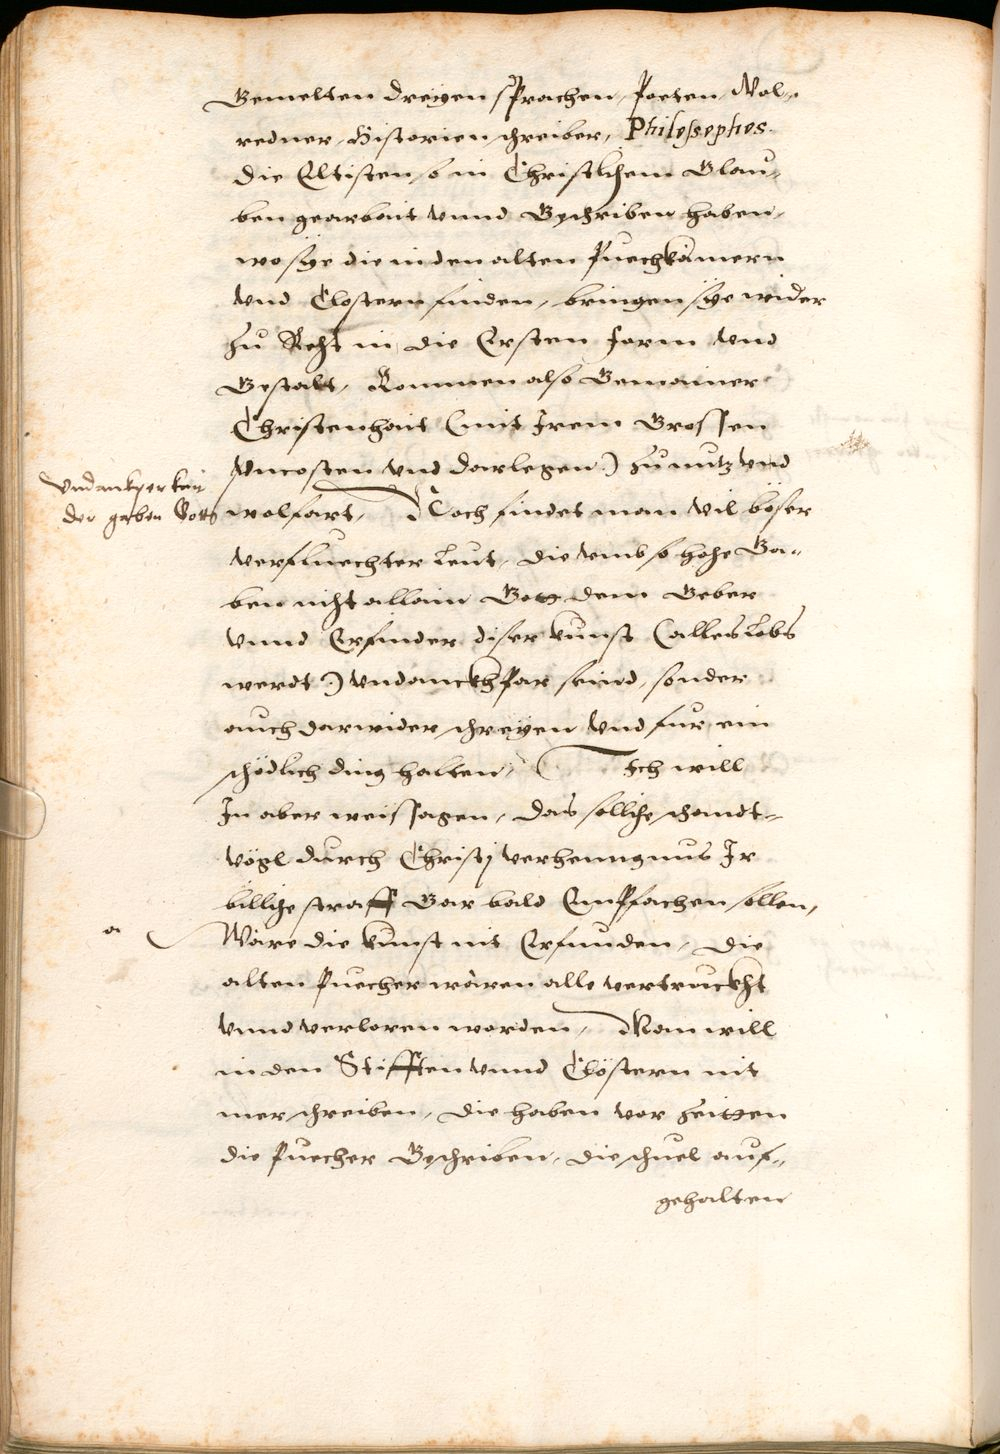 Gemelten dreyen sprachen, Poeten, Wol-
redner, Historien schreiber, Philosophos.
die Eltisten so in Christlichem Glau-
ben gearbait vnnd Geschriben haben,
wo sye die in den alten Puechkamern
vnd Clostern finden, bringen sye wider
zu Recht in die Ersten form vnd
Gestalt, Kommen also Gemainer
Christenhait (mit Irem Grossen
Vncosten vnd darlegen) zu nutz vnd
Vndankperkeit
der gaben Gotts
wolfart, Noch findet man vil böser
verfluechter leut, die vmb so hohe Ga-
ben nicht allain Gott dem Geber
vnnd Erfinder diser kunst (alles lobs
werdt) vndanckhpar seind, sonder
auch darwider schreyen vnd fur ein
schödlich ding halten, Ich will
In aber weissagen, das solliche schandt-
vögl durch Christj verhenngnus Ir
billiche straff Gar bald Empfachen sollen,
Wäre die kunst nit Erfunden, die
alten Puecher wären alle vertruckht
vnnd verloren worden, Man will
in den Stifften vnnd Clöstern nit
mer schreiben, die haben vor zeitten
die Puecher Geschriben, die schuel auf-
gehalten